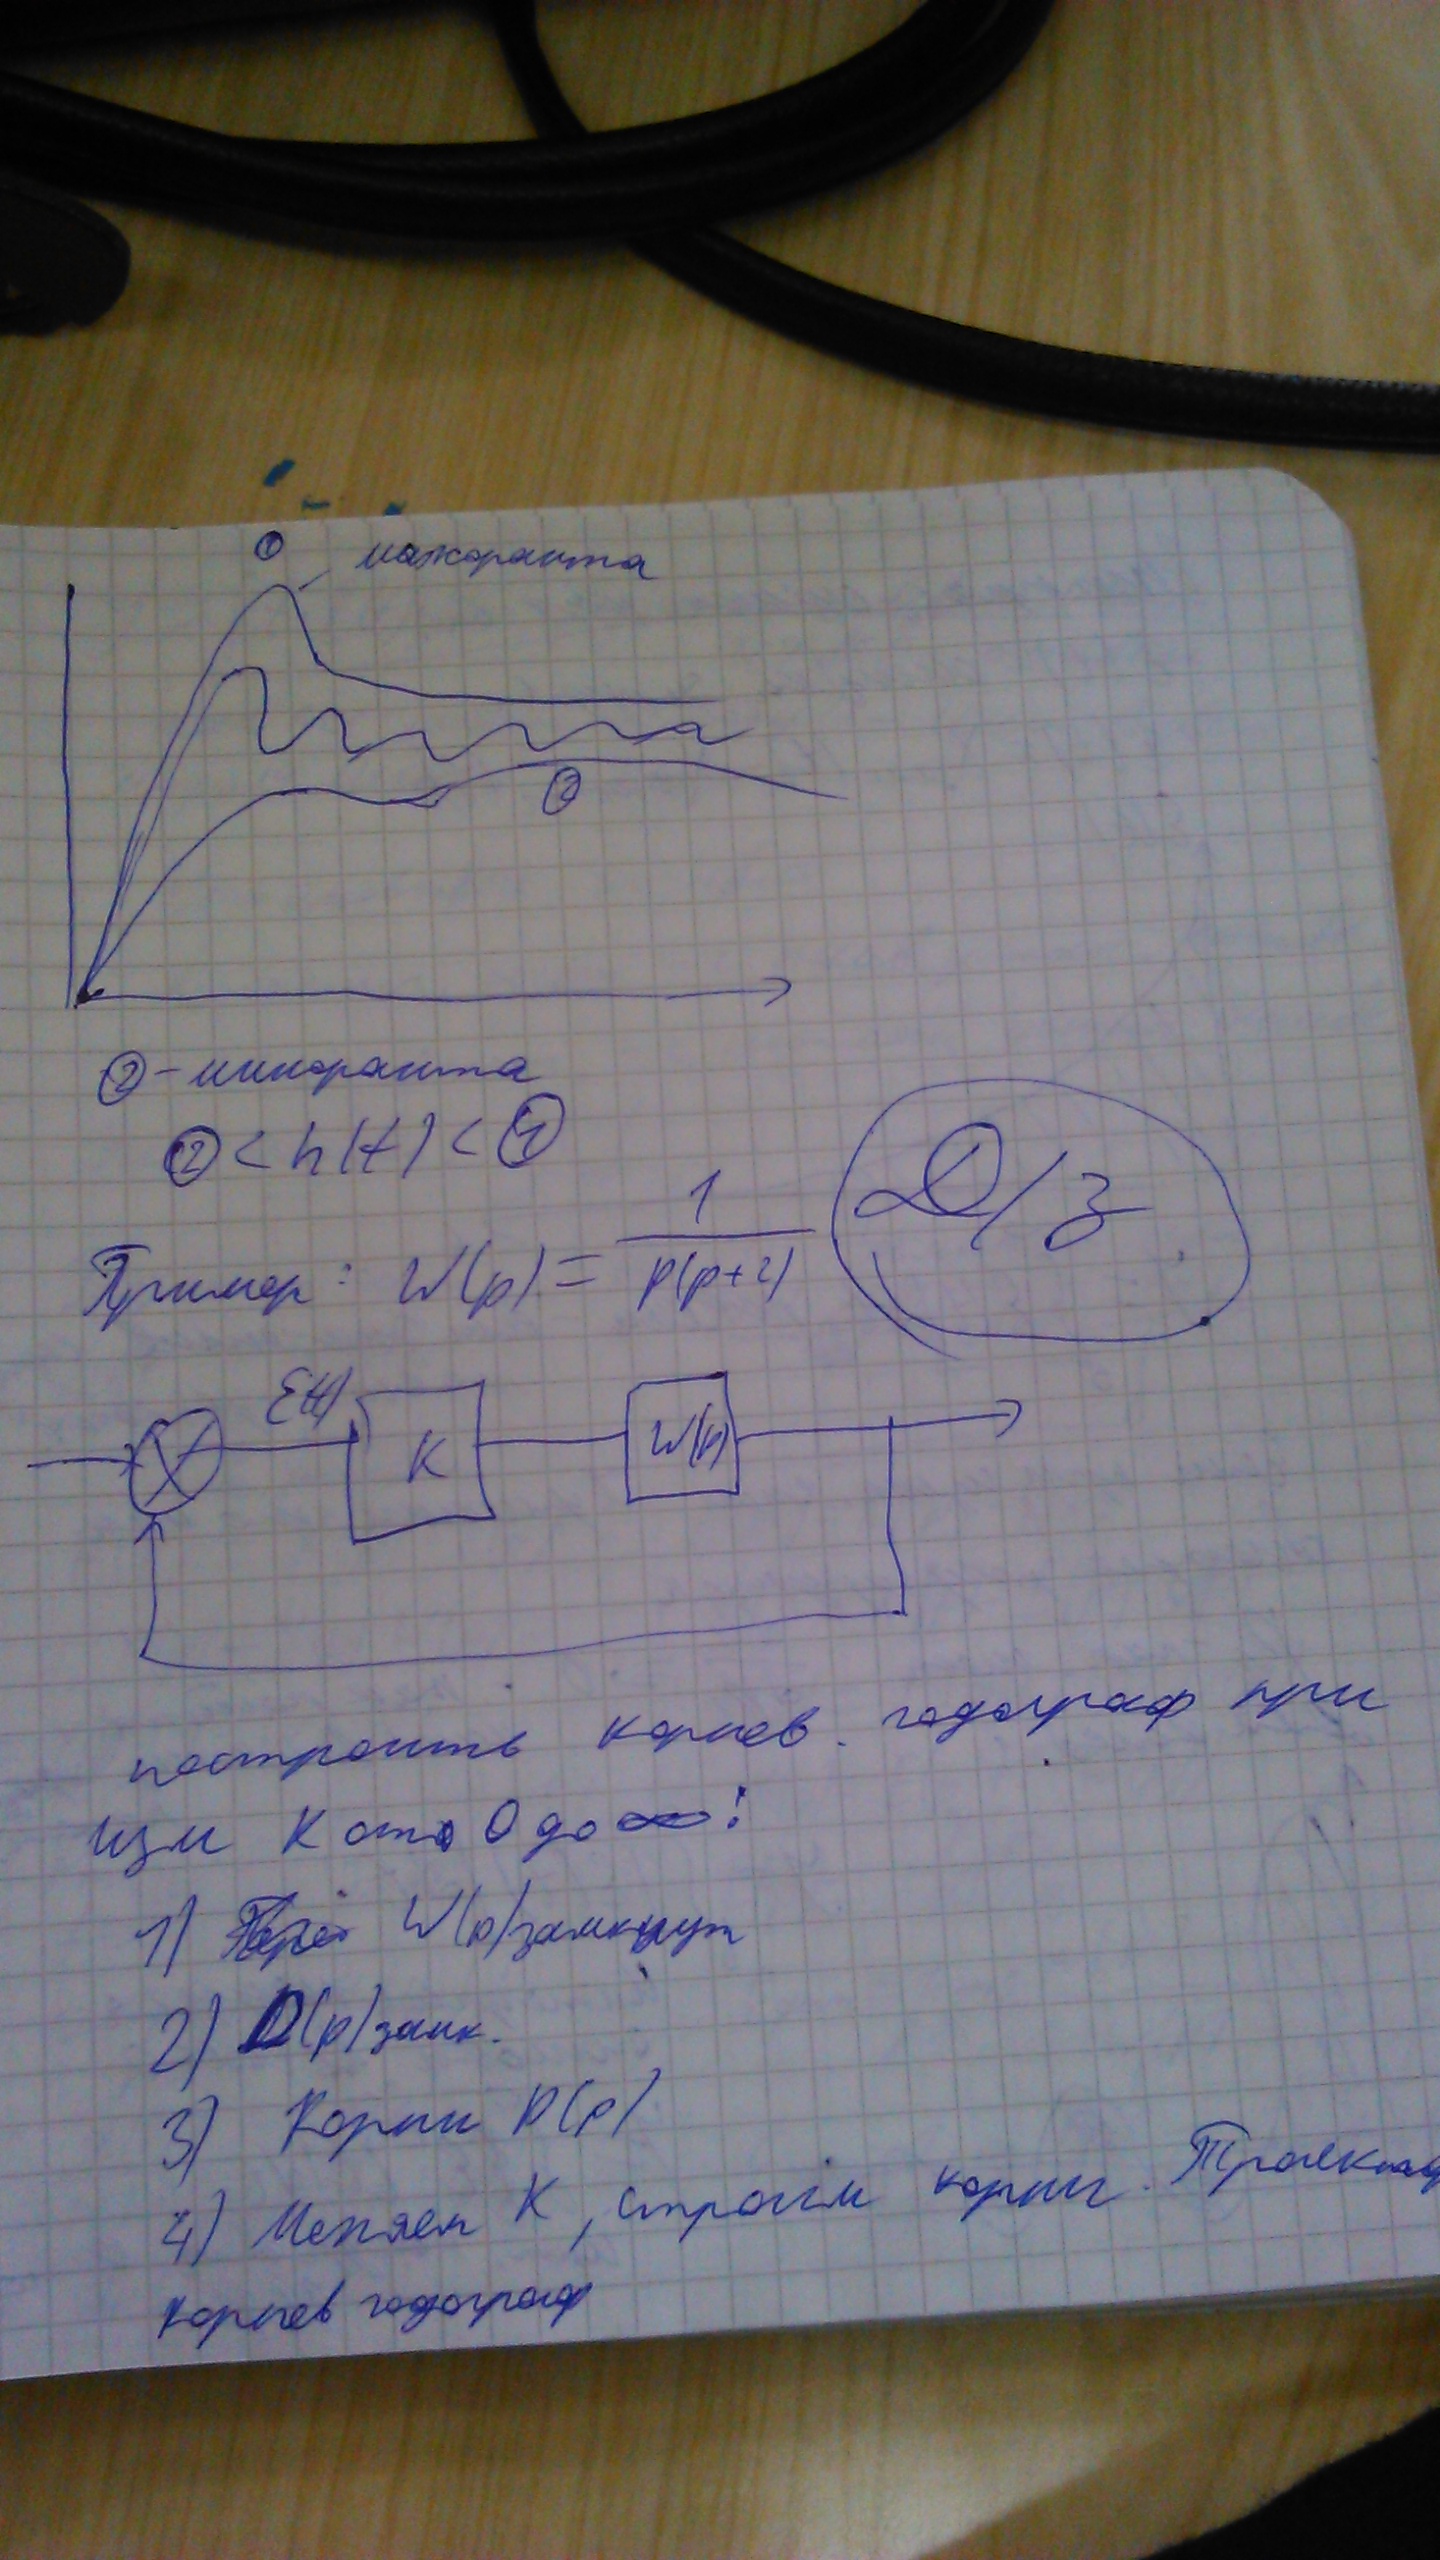 ① мажоранта
②
② - миноранта
② < h(t) < ①
Д/з
Пример: W(p) = 1 / p(p+2)
ε(t)
K
W(p)
построить корнев. годограф при
изм K от 0 до ∞!
1) W(p) замкнут
2) D(p) замк.
3) Корни D(p)
4) Меняем K, строим корни.
корнев годограф